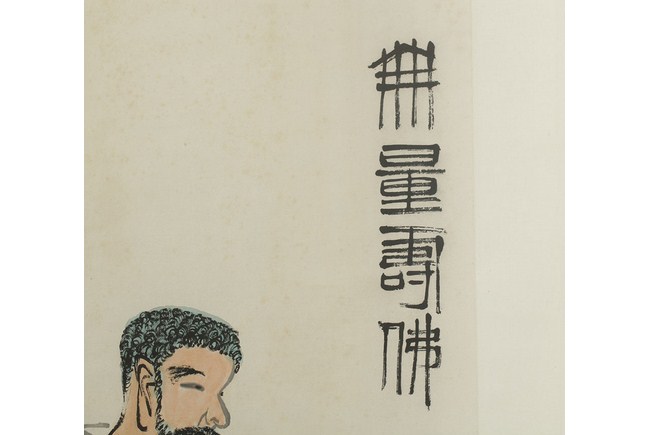 無量壽佛